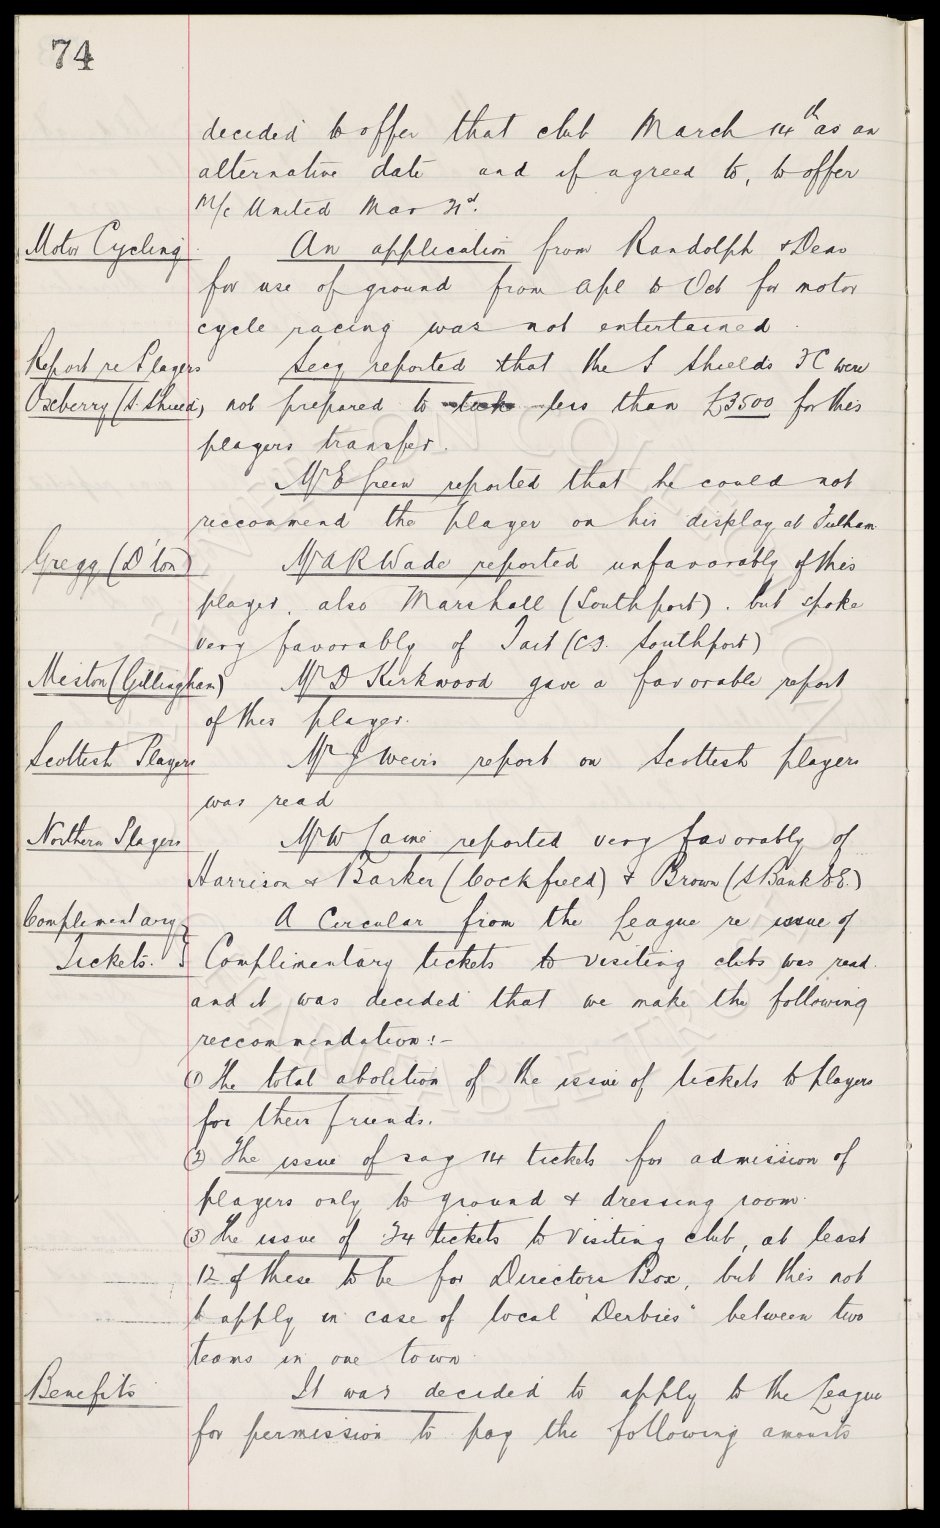 74
decided to offer that club March 14th as an
alternative date and if agreed to, to offer
M/c United Mar 21st.
Motor Cycling
An application from Randolph & Dean
for use of ground from Apl to Oct for motor
cycle racing was not entertained
Report re Players
Secy reported that the S Shields FC were
Oxberry (S. Shields)
not prepared to take less than £3500 for this
players transfer.
Mr E Green reported that he could not
reccommend the player on his display at Fulham
Gregg (D'ton)
Mr A R Wade reported unfavorably of this
player, also Marshall (Southport). but spoke
very favorably of Tait (C.F. Southport)
Meston (Gillingham)
Mr D Kirkwood gave a favorable report
of this player.
Scottish Players
Mr J Weirs report on Scottish players
was read
Northern Players
Mr W Caine reported very favorably of
Harrison & Barker (Cockfield) & Brown (S Bank E.E.)
Complimentary
A Circular from the League re issue of
Tickets.
Complimentary tickets to visiting clubs was read.
and it was decided that we make the following
reccommendation :-
(1) The total abolition of the issue of tickets to players
for their friends.
(2) The issue of say 14 tickets for admission of
players only to ground & dressing room.
(3) The issue of 24 tickets to visiting club, at least
12 of these to be for Directors Box, but this not
to apply in case of local "Derbies" between two
teams in one town
Benefits
It was decided to apply to the League
for permission to pay the following amounts